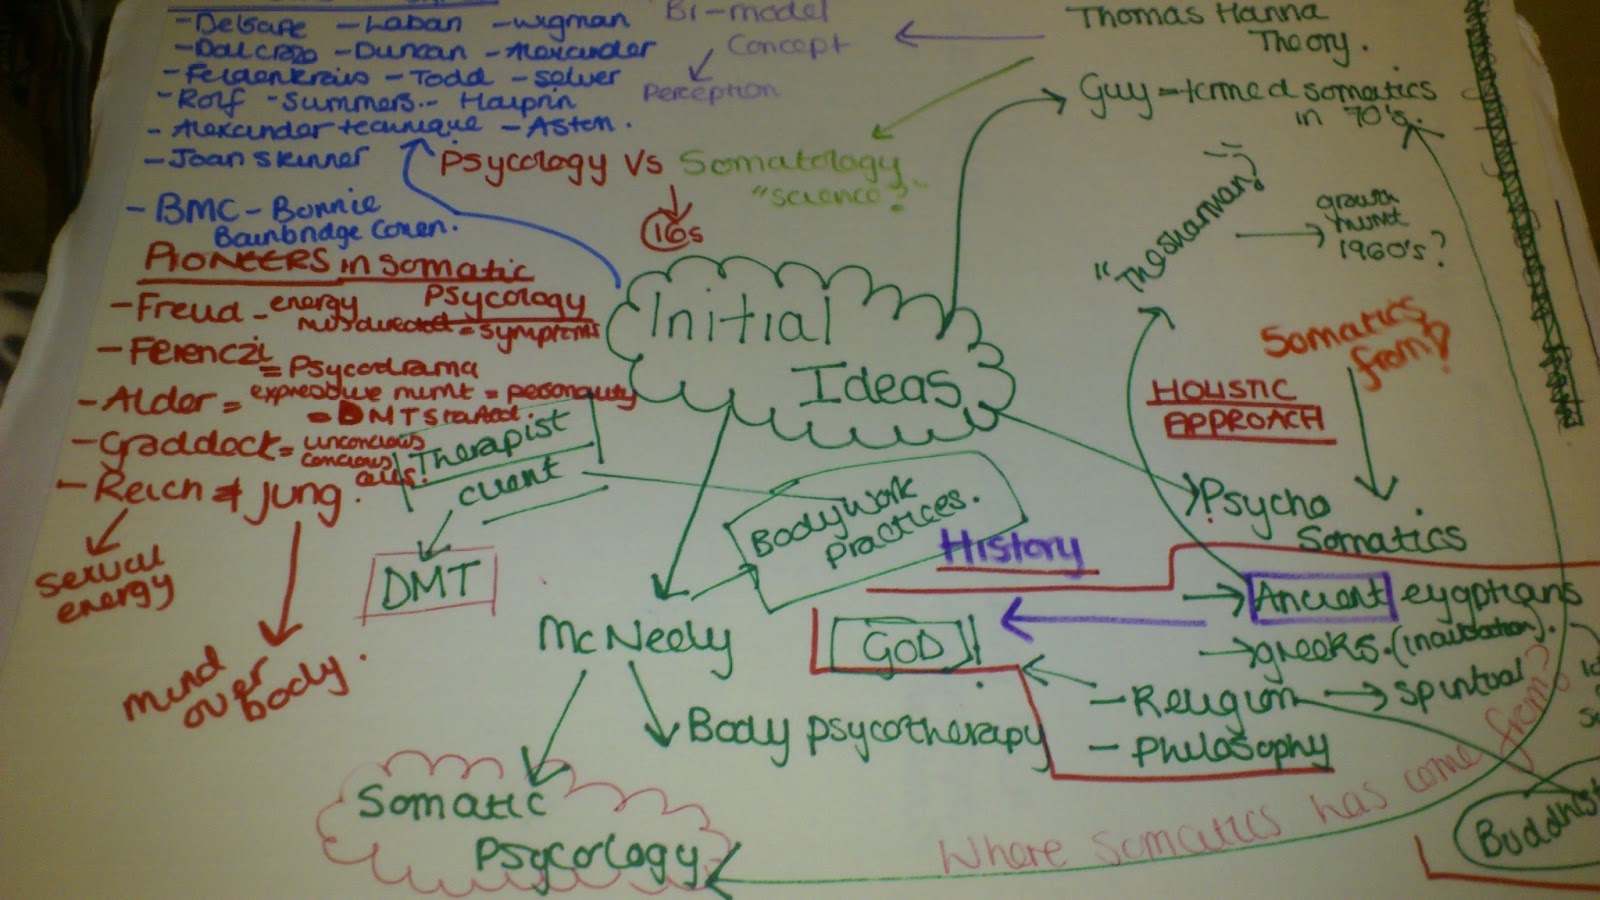 - Delsarte - Laban - wigman
- Dalcroze - Duncan - Alexander
- Feldenkrais - Todd - selver
- Rolf - Summers - Halprin
- Alexander technique - Aston.
- Joan Skinner
- BMC - Bonnie
Bainbridge Cohen.
Bi-model
Concept
Perception
Thomas Hanna
Theory.
Guy = termed somatics
in 70's.
Psycology Vs Somatology
"science?"
16s
"The shaman?
growth
mvmt
1960's?
PIONEERS in Somatic
Psycology
- Freud - energy
misdirected = symptoms
- Ferenczi
= Psycodrama
- Alder = expressive mvmt = personality
= DMT Started.
- Graddock = unconcious
concious
- Reich & Jung.
sexual
energy
mind
over
body.
Initial
Ideas
Somatics
from?
HOLISTIC
APPROACH
Therapist
client
DMT
Bodywork
practices.
Psycho
Somatics
History
Ancient eygptians
greeks.
- Religion → spiritual
- Philosophy
GOD!
McNeely
Body psycotherapy
Somatic
Psycology
Where Somatics has come from?
Buddhist